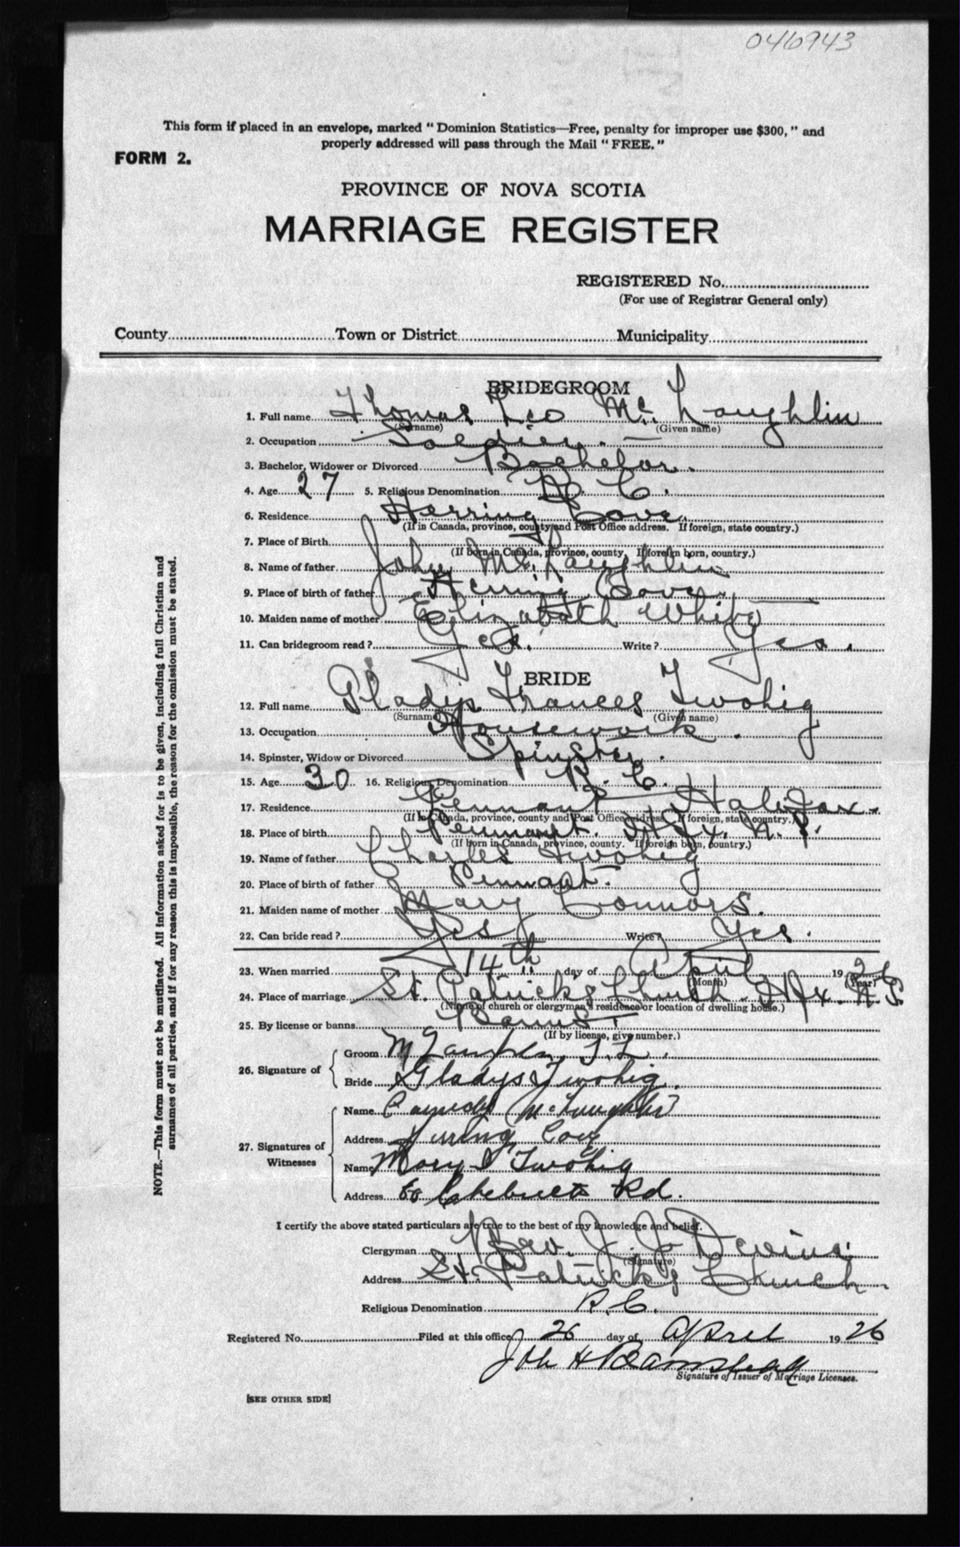 046943
This form if placed in an envelope, marked "Dominion Statistics—Free, penalty for improper use $300," and
properly addressed will pass through the Mail "FREE."
FORM 2.
PROVINCE OF NOVA SCOTIA
MARRIAGE REGISTER
REGISTERED No.
(For use of Registrar General only)
County Town or District Municipality
BRIDEGROOM
1. Full name Thomas Leo McLaughlin
(Surname) (Given name)
2. Occupation Soldier.
3. Bachelor, Widower or Divorced Bachelor.
4. Age 27 5. Religious Denomination R. C.
6. Residence Herring Cove
(If in Canada, province, county and Post Office address. If foreign, state country.)
7. Place of Birth
(If born in Canada, province, county. If foreign born, country.)
8. Name of father John McLaughlin
9. Place of birth of father Herring Cove.
10. Maiden name of mother Elizabeth White
11. Can bridegroom read? Yes. Write? Yes.
BRIDE
12. Full name Gladys Frances Twohig
(Surname) (Given name)
13. Occupation Housework.
14. Spinster, Widow or Divorced Spinster.
15. Age 30 16. Religious Denomination R. C.
17. Residence Pennant Halifax.
(If in Canada, province, county and Post Office address. If foreign, state country.)
18. Place of birth Pennant. Hfx. N.S.
(If born in Canada, province, county. If foreign born, country.)
19. Name of father Charles Twohig
20. Place of birth of father Pennant.
21. Maiden name of mother Mary Connors.
22. Can bride read? Yes Write? Yes.
23. When married 14th day of April 1926
(Month) (Year)
24. Place of marriage St. Patricks Church. Hfx. N.S.
(Name of church or clergyman's residence or location of dwelling house.)
25. By license or banns Banns
(If by license, give number.)
26. Signature of
Groom T. L.
Bride Gladys Twohig.
27. Signatures of Witnesses
Name McLaughlin
Address Herring Cove
Name Mary Twohig
Address 60 Chebucto Rd.
I certify the above stated particulars are true to the best of my knowledge and belief.
Clergyman Rev. J. J. Devine.
(Signature)
Address St. Patricks Church
Religious Denomination R. C.
Registered No. Filed at this office 26 day of April 1926
John H
Signature of Issuer of Marriage Licenses.
[SEE OTHER SIDE]
NOTE.—This form must not be mutilated. All information asked for is to be given, including full Christian and
surnames of all parties, and if for any reason this is impossible, the reason for the omission must be stated.